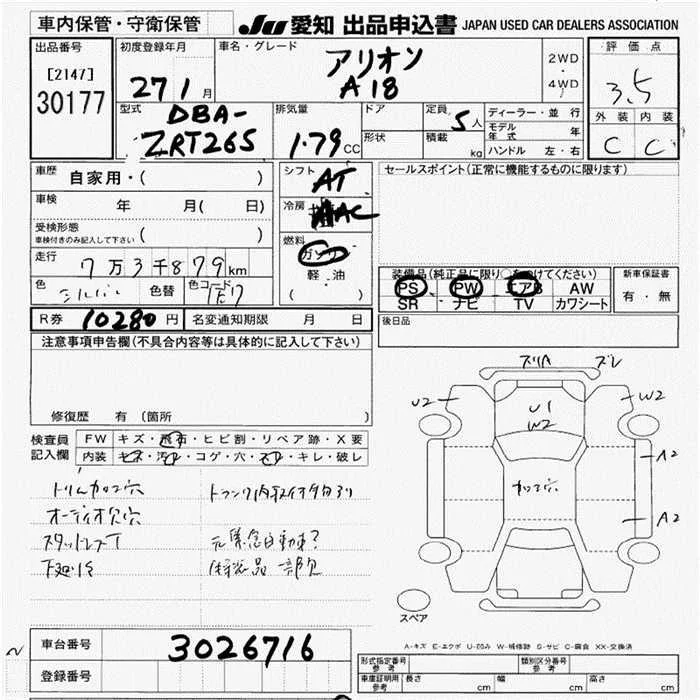 車内保管・守衛保管
JU 愛知 出品申込書 JAPAN USED CAR DEALERS ASSOCIATION
出品番号
[2147]
30177
初度登録年月
27 1 月
車名・グレード
アリオン
A18
2WD
・
4WD
評価点
3.5
外装 内装
C C
型式
DBA-
ZRT265
排気量
1.79 CC
ドア
形状
定員 5 人
積載 kg
ディーラー・並行
モデル年式 年
ハンドル 左・右
車歴 自家用・( )
車検 年 月( 日)
受検形態
車検付きのみ記入して下さい ( )
走行 7万3千879km
色 シルバー 色替 色コード 1E7
シフト AT
冷房 AAC
燃料
ガソリン
軽・油
( )
セールスポイント(正常に機能するものに限ります)
装備品(純正品に限り○をつけてください)
PS PW エアB AW
SR ナビ TV カワシート
新車保証書
有・無
R券 10280 円 名変通知期限 月 日
後日品
注意事項申告欄(不具合内容等は具体的に記入して下さい)
修復歴 有 (箇所
検査員
記入欄
FW キズ・飛石・ヒビ割・リペア跡・X要
内装 キズ・汚れ・コゲ・穴・スレ・キレ・破レ
トリム加工穴
トランク内取付ケ有り
オーディオ欠穴
スタッドレスT
元緊急自動車?
下廻りS
内装品一部欠
スリA ズレ
U2
W2
U1
W2
A2
加工穴
A2
スペア
A-キズ E-エクボ U-凹み W-補修跡 S-サビ C-腐食 XX-交換済
車台番号 3026716
登録番号
型式指定番号
参考
類別区分番号
参考
車庫証明用
参考
長さ cm 幅 cm 高さ cm